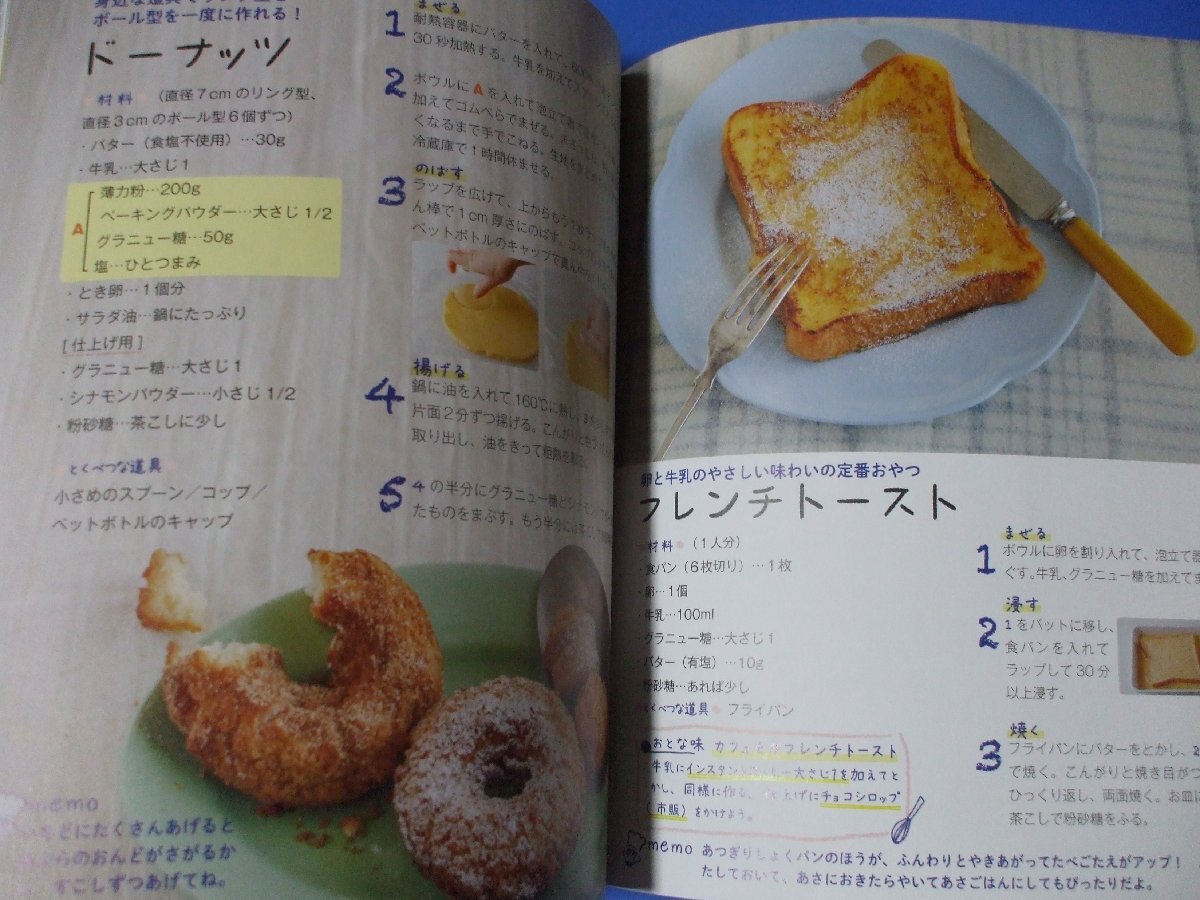 ボール型を一度に作れる！
ドーナッツ
材料 （直径７cmのリング型、
直径３cmのボール型６個ずつ）
・バター（食塩不使用）…30g
・牛乳…大さじ１
A
薄力粉…200g
ベーキングパウダー…大さじ1/2
グラニュー糖…50g
塩…ひとつまみ
・とき卵…１個分
・サラダ油…鍋にたっぷり
［仕上げ用］
・グラニュー糖…大さじ１
・シナモンパウダー…小さじ1/2
・粉砂糖…茶こしに少し
とくべつな道具
小さめのスプーン／コップ／
ペットボトルのキャップ
memo
にたくさんあげると
のおんどがさがるか
すこしずつあげてね。
まぜる
1 耐熱容器にバターを入れて、600
30秒加熱する。牛乳を加えて
2 ボウルにAを入れて泡立て器で
加えてゴムべらでまぜる。
くなるまで手でこねる。生地を
冷蔵庫で１時間休ませる。
のばす
3 ラップを広げて、上からもう
ん棒で１cm厚さにのばす。コップ
ペットボトルのキャップで真ん中
揚げる
4 鍋に油を入れて160℃に熱し、
片面２分ずつ揚げる。こんがり
取り出し、油をきって粗熱を
5 4の半分にグラニュー糖とシナモン
たものをまぶす。もう半分には
卵と牛乳のやさしい味わいの定番おやつ
フレンチトースト
材料 （１人分）
・食パン（６枚切り）…１枚
・卵…１個
・牛乳…100ml
グラニュー糖…大さじ１
バター（有塩）…10g
粉砂糖…あれば少し
とくべつな道具 フライパン
おとな味 カフェ フレンチトースト
牛乳にインスタント 大さじ1を加えてと
かし、同様に作る。仕上げにチョコシロップ
（市販）をかけよう。
まぜる
1 ボウルに卵を割り入れて、泡立て器
ぐす。牛乳、グラニュー糖を加えてま
浸す
2 1をバットに移し、
食パンを入れて
ラップして30分
以上浸す。
焼く
3 フライパンにバターをとかし、2
で焼く。こんがりと焼き目がつ
ひっくり返し、両面焼く。お皿に
茶こしで粉砂糖をふる。
memo あつぎりしょくパンのほうが、ふんわりとやきあがってたべごたえがアップ！
たしておいて、あさにおきたらやいてあさごはんにしてもぴったりだよ。